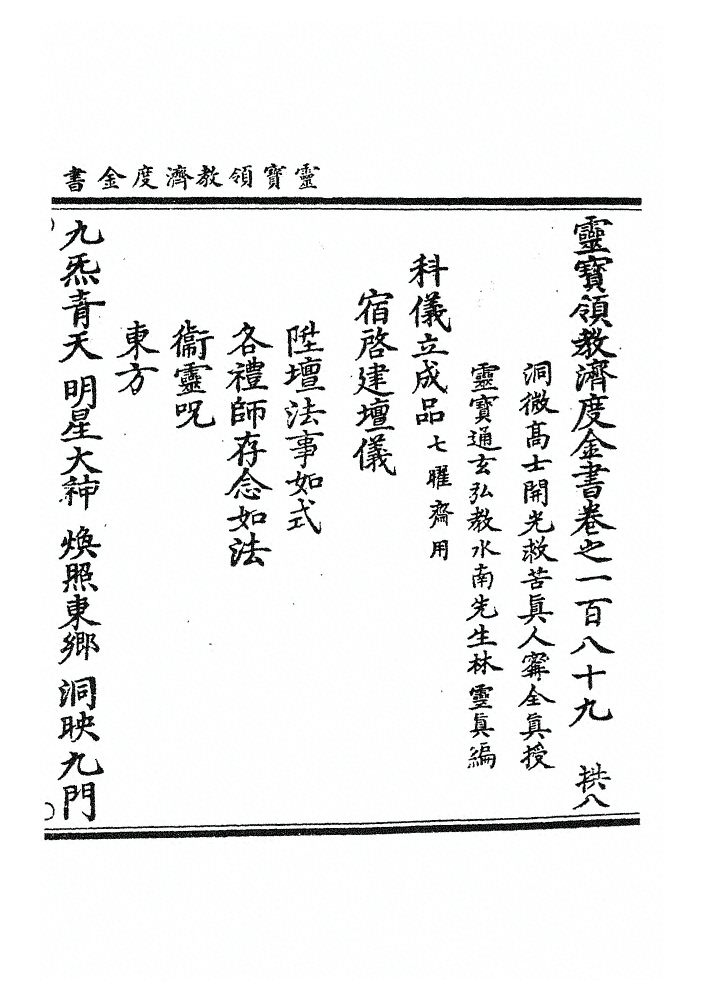 靈寶領教濟度金書
靈寶領教濟度金書卷之一百八十九 拱八
洞微高士開光救苦眞人甯全眞授
靈寶通玄弘教水南先生林靈眞編
科儀立成品 七曜齋用
宿啓建壇儀
陞壇法事如式
各禮師存念如法
衞靈呪
東方
九炁青天 明星大神 煥照東鄉 洞映九門